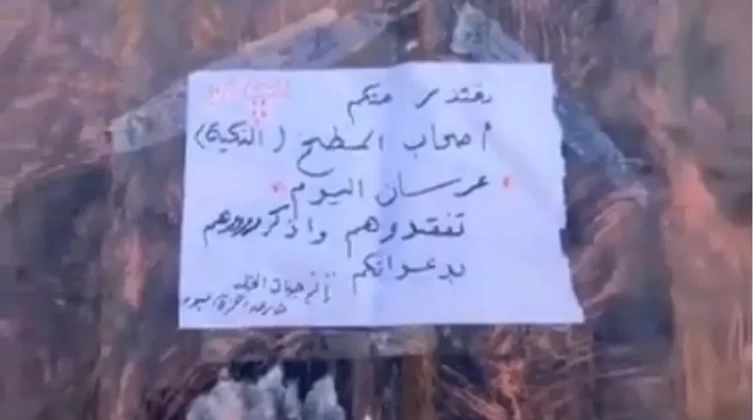 نعتذر منكم
أصحاب المطبخ (التكية)
عرسان اليوم
تفقدوهم واذكروهم
بدعواتكم